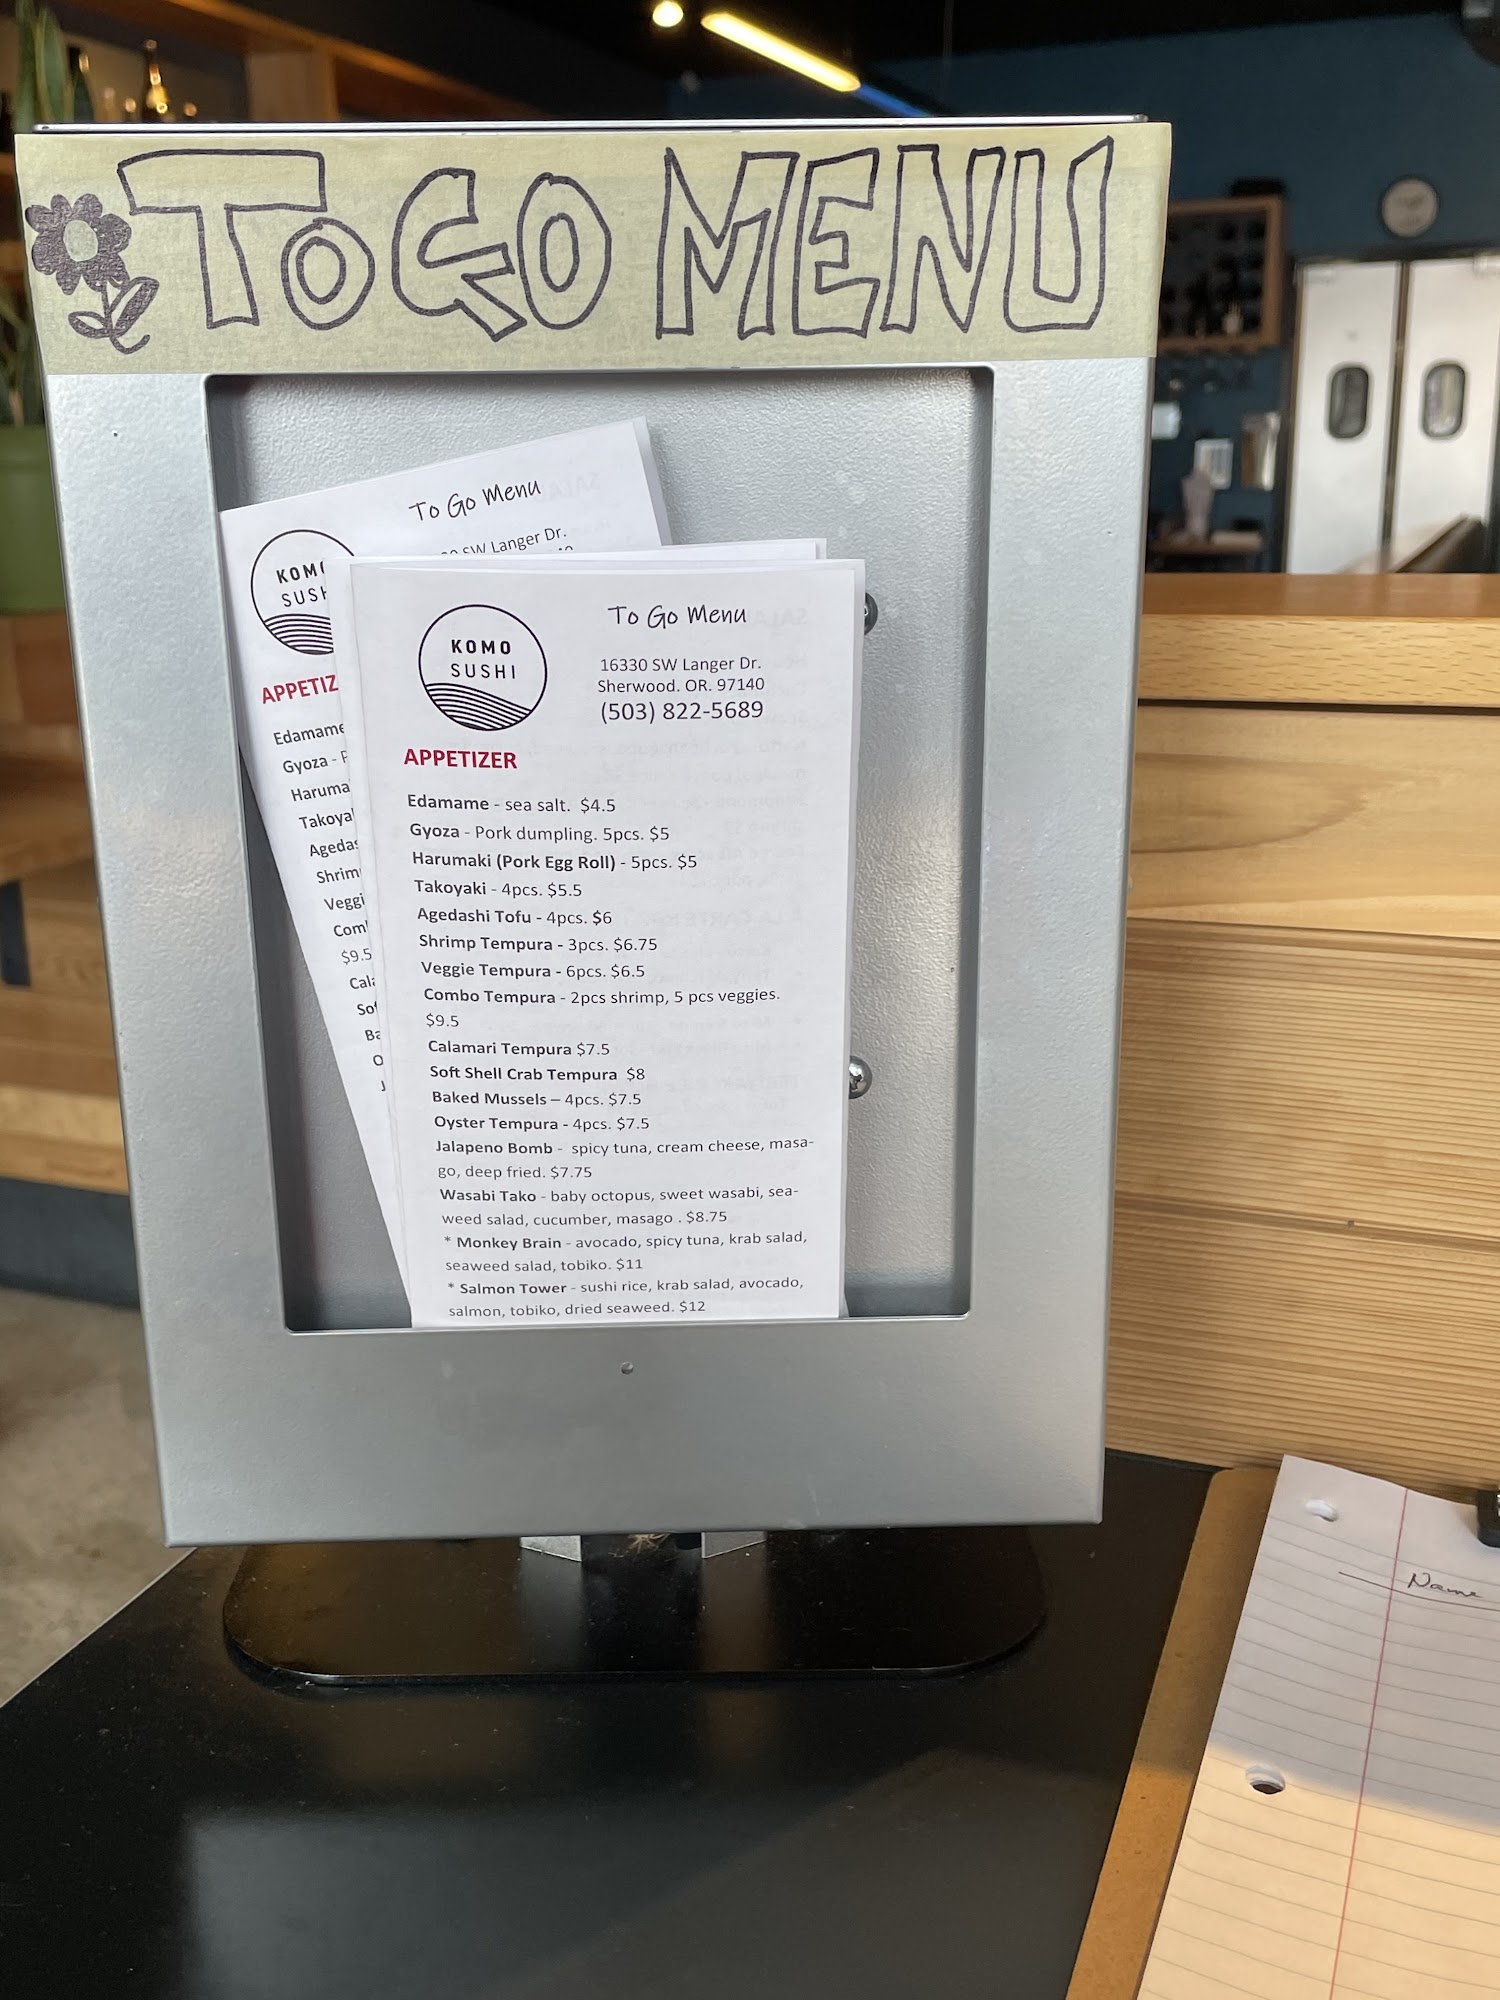 TO GO MENU
To Go Menu
SW Langer Dr.
KOMO
SUSHI
APPETIZ
Edamame
Gyoza -
Haruma
Takoya
Agedas
Shrim
Veggi
Com
$9.5
Cala
Sof
Ba
O
J
To Go Menu
KOMO
SUSHI
16330 SW Langer Dr.
Sherwood. OR. 97140
(503) 822-5689
APPETIZER
Edamame - sea salt. $4.5
Gyoza - Pork dumpling. 5pcs. $5
Harumaki (Pork Egg Roll) - 5pcs. $5
Takoyaki - 4pcs. $5.5
Agedashi Tofu - 4pcs. $6
Shrimp Tempura - 3pcs. $6.75
Veggie Tempura - 6pcs. $6.5
Combo Tempura - 2pcs shrimp, 5 pcs veggies.
$9.5
Calamari Tempura $7.5
Soft Shell Crab Tempura $8
Baked Mussels – 4pcs. $7.5
Oyster Tempura - 4pcs. $7.5
Jalapeno Bomb - spicy tuna, cream cheese, masa-
go, deep fried. $7.75
Wasabi Tako - baby octopus, sweet wasabi, sea-
weed salad, cucumber, masago . $8.75
* Monkey Brain - avocado, spicy tuna, krab salad,
seaweed salad, tobiko. $11
* Salmon Tower - sushi rice, krab salad, avocado,
salmon, tobiko, dried seaweed. $12
Name